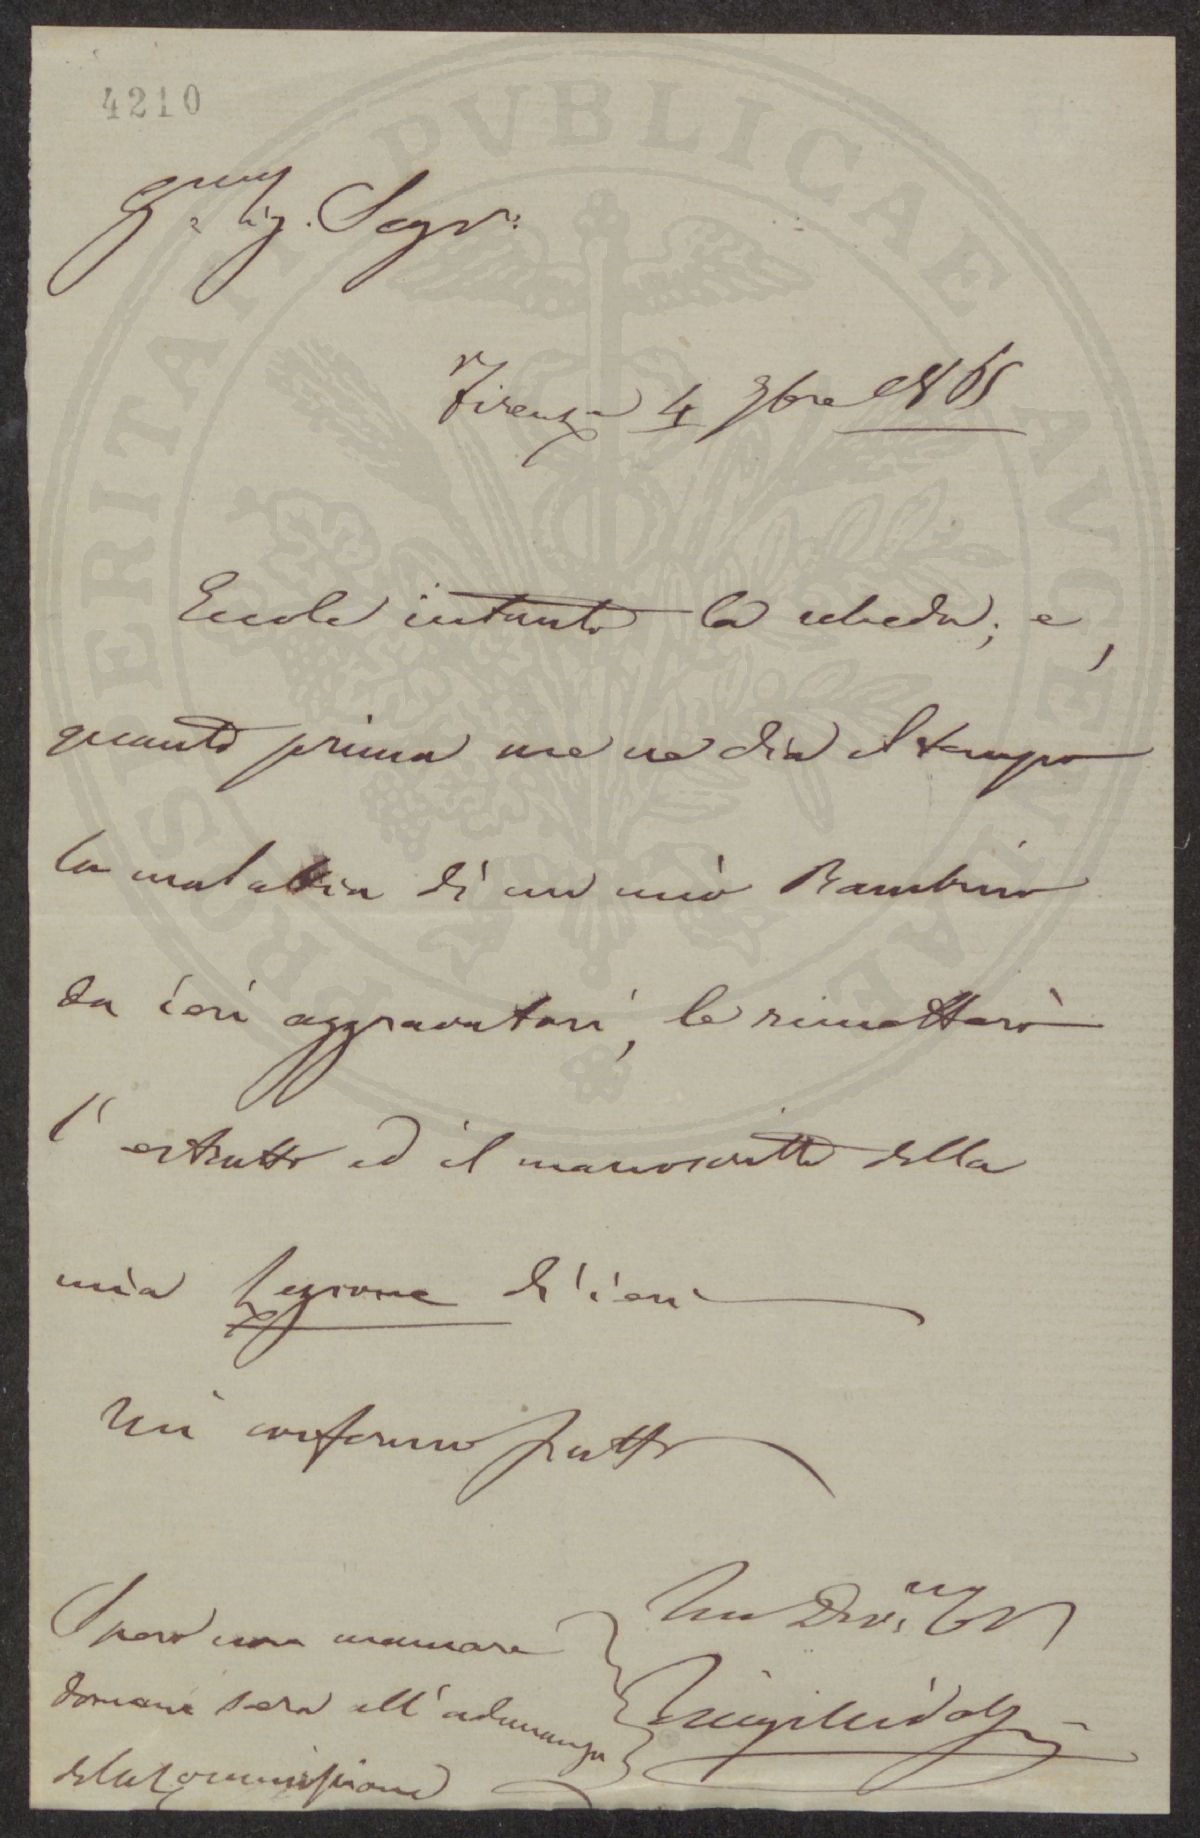 4210
Sig. Segr.
Firenze 4 9bre 1865
Eccole intanto la scheda; e,
quanto prima me ne dia il tempo
la malattia di un mio Bambino
da ieri aggravatasi, le rimetterò
l'estratto ed il manoscritto della
mia Lezione di ieri
Mi confermo frattº
Suo Dev.
Spero non mancare
domani sera all'adunanza
della Commissione